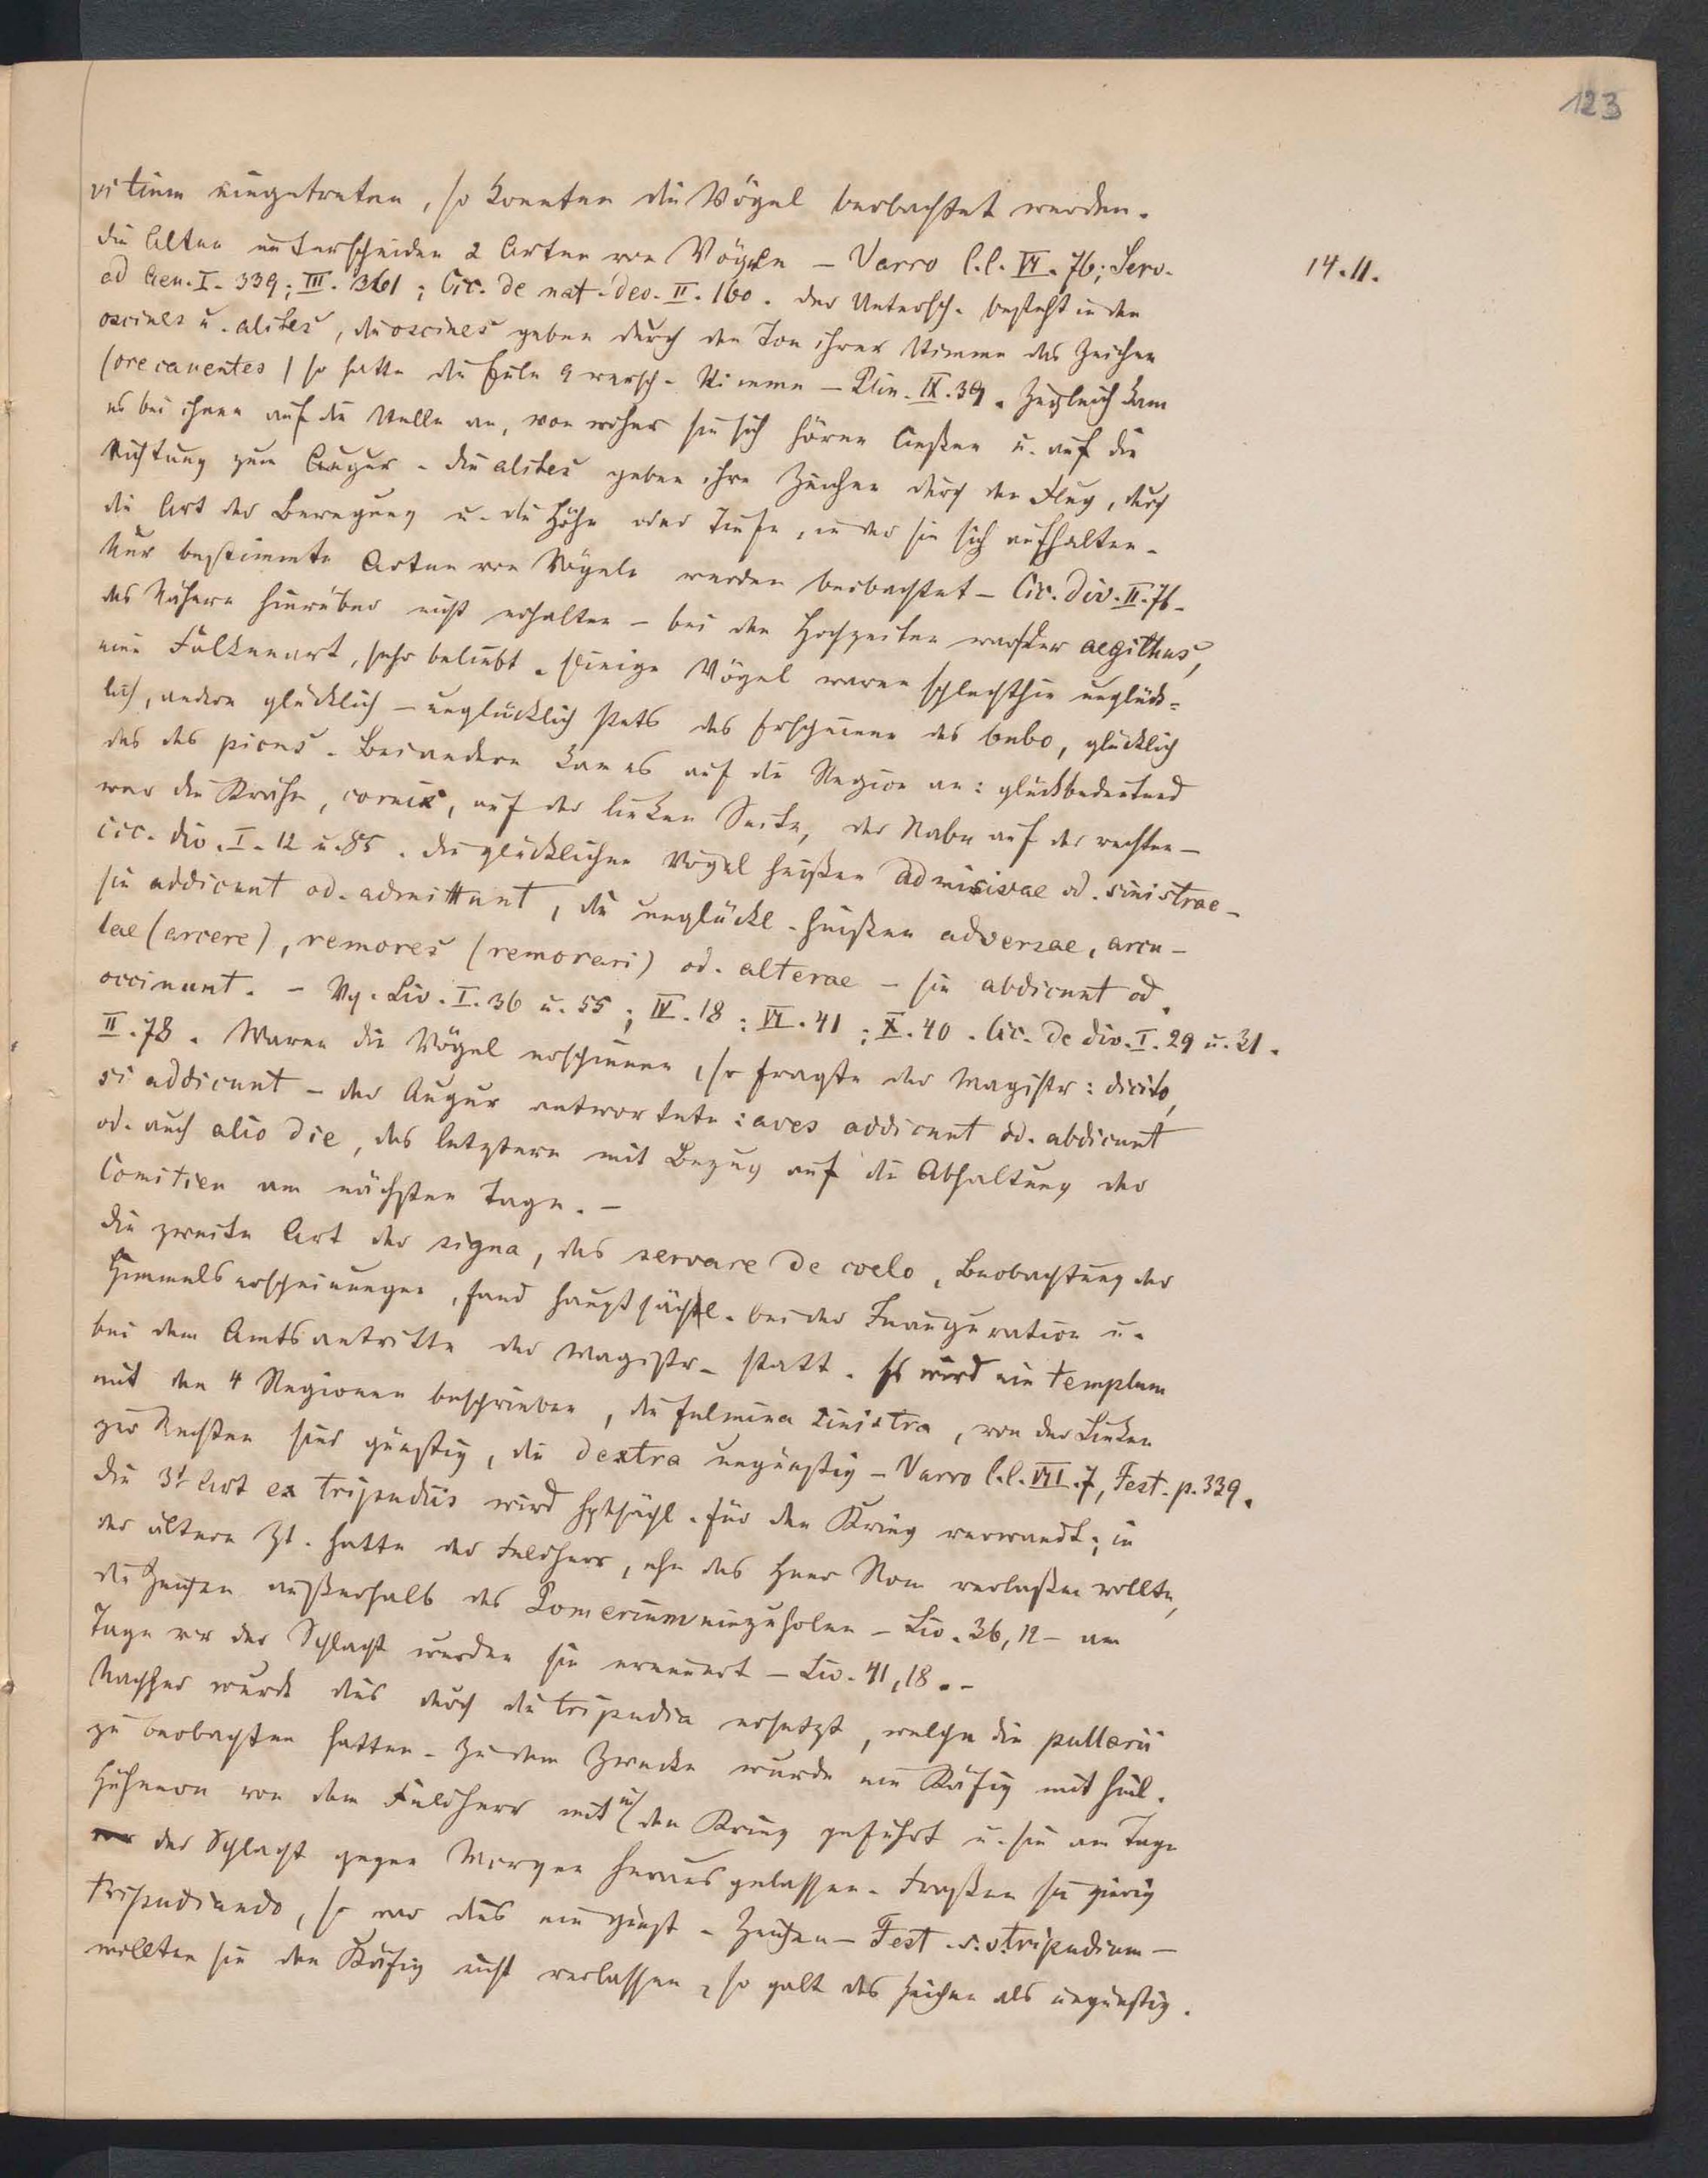 123
vitium eingetreten, so konnten die Vögel beobachtet werden.
Die Alten unterscheiden 2 Arten von Vögeln – Varro l.l. VI. 76; Serv.
14.11.
ad Aen. I. 339; III. 361; Cic. de nat. deo. II. 160. Der Untersch. besteht in den
oscines u. alites, die oscines geben durch den Ton ihrer Stimme das Zeichen
(ore canentes) so hatte die Eule 9 versch. Stimmen – Plin. IX. 39. Zugleich kam
es bei ihnen auf die Stelle an, von woher sie sich hören ließen u. auf die
Richtung zum Augur. Die alites geben ihre Zeichen durch den Flug, durch
die Art der Bewegung u. die Höhe oder Tiefe, in der sie sich aufhalten.
Nur bestimmte Arten von Vögeln werden beobachtet – Cic. div. II. 76.
das Nähere hierüber nicht erhalten – bei den Hochzeiten war der aegithus,
eine Falkenart, sehr beliebt. Einige Vögel waren schlechthin unglück=
lich, andere glücklich – unglücklich stets das Erscheinen des bubo, glücklich
das des picus. Bei andern kam es auf die Region an: glückbedeutend
war die Krähe, cornix, auf der linken Seite, der Rabe auf der rechten –
Cic. div. I. 12 u. 85. Die glücklichen Vögel heißen admissivae od. sinistrae –
sie addicunt od. admittunt, die unglückl. heißen adversae, arcu-
lae (arcere), remores (remorari) od. alterae – sie abdicunt od.
occinunt. – Vg. Liv. I. 36 u. 55; IV. 18; VI. 41; X. 40. Cic. de div. I. 29 u. 31.
II. 78. Waren die Vögel erschienen, so fragte der Magistr: dicito,
si addicunt – der Augur antwortete: aves addicunt od. abdicunt
od. auch alio die, das letztere mit Bezug auf die Abhaltung der
Comitien am nächsten Tage. –
Die zweite Art der signa, das servare de coelo, Beobachtung der
Himmelserscheinungen, fand hauptsächl. bei der Inauguration u.
bei dem Amtsantritte der Magistr. statt. Es wird ein templum
mit den 4 Regionen beschrieben, die fulmina sinistra, von der Linken
zur Rechten sind günstig, die dextra ungünstig – Varro l.l. VII. 7, Fest. p. 339.
Die 3t Art ex tripudiis wird hptsächl. für den Krieg verwandt; in
der ältern Zt. hatte der Feldherr, ehe das Heer Rom verlaßen wollte,
die Zeichen außerhalb des Pomerium einzuholen – Liv. 36, 12 – am
Tage vor der Schlacht wurden sie erneuert – Liv. 41, 18. –
Nachher wurde dies durch die tripudia ersetzt, welche die pullarii
zu beobachten hatten. Zu dem Zwecke wurde ein Käfig mit heil.
Hühnern von dem Feldherr mit in den Krieg geführt u. sie am Tage
der Schlacht gegen Morgen herausgelassen. Fraßen sie gierig
tripudiando, so war dies ein günst. Zeichen – Fest. s.v. tripudium –
wollten sie den Käfig nicht verlassen, so galt das Zeichen als ungünstig.